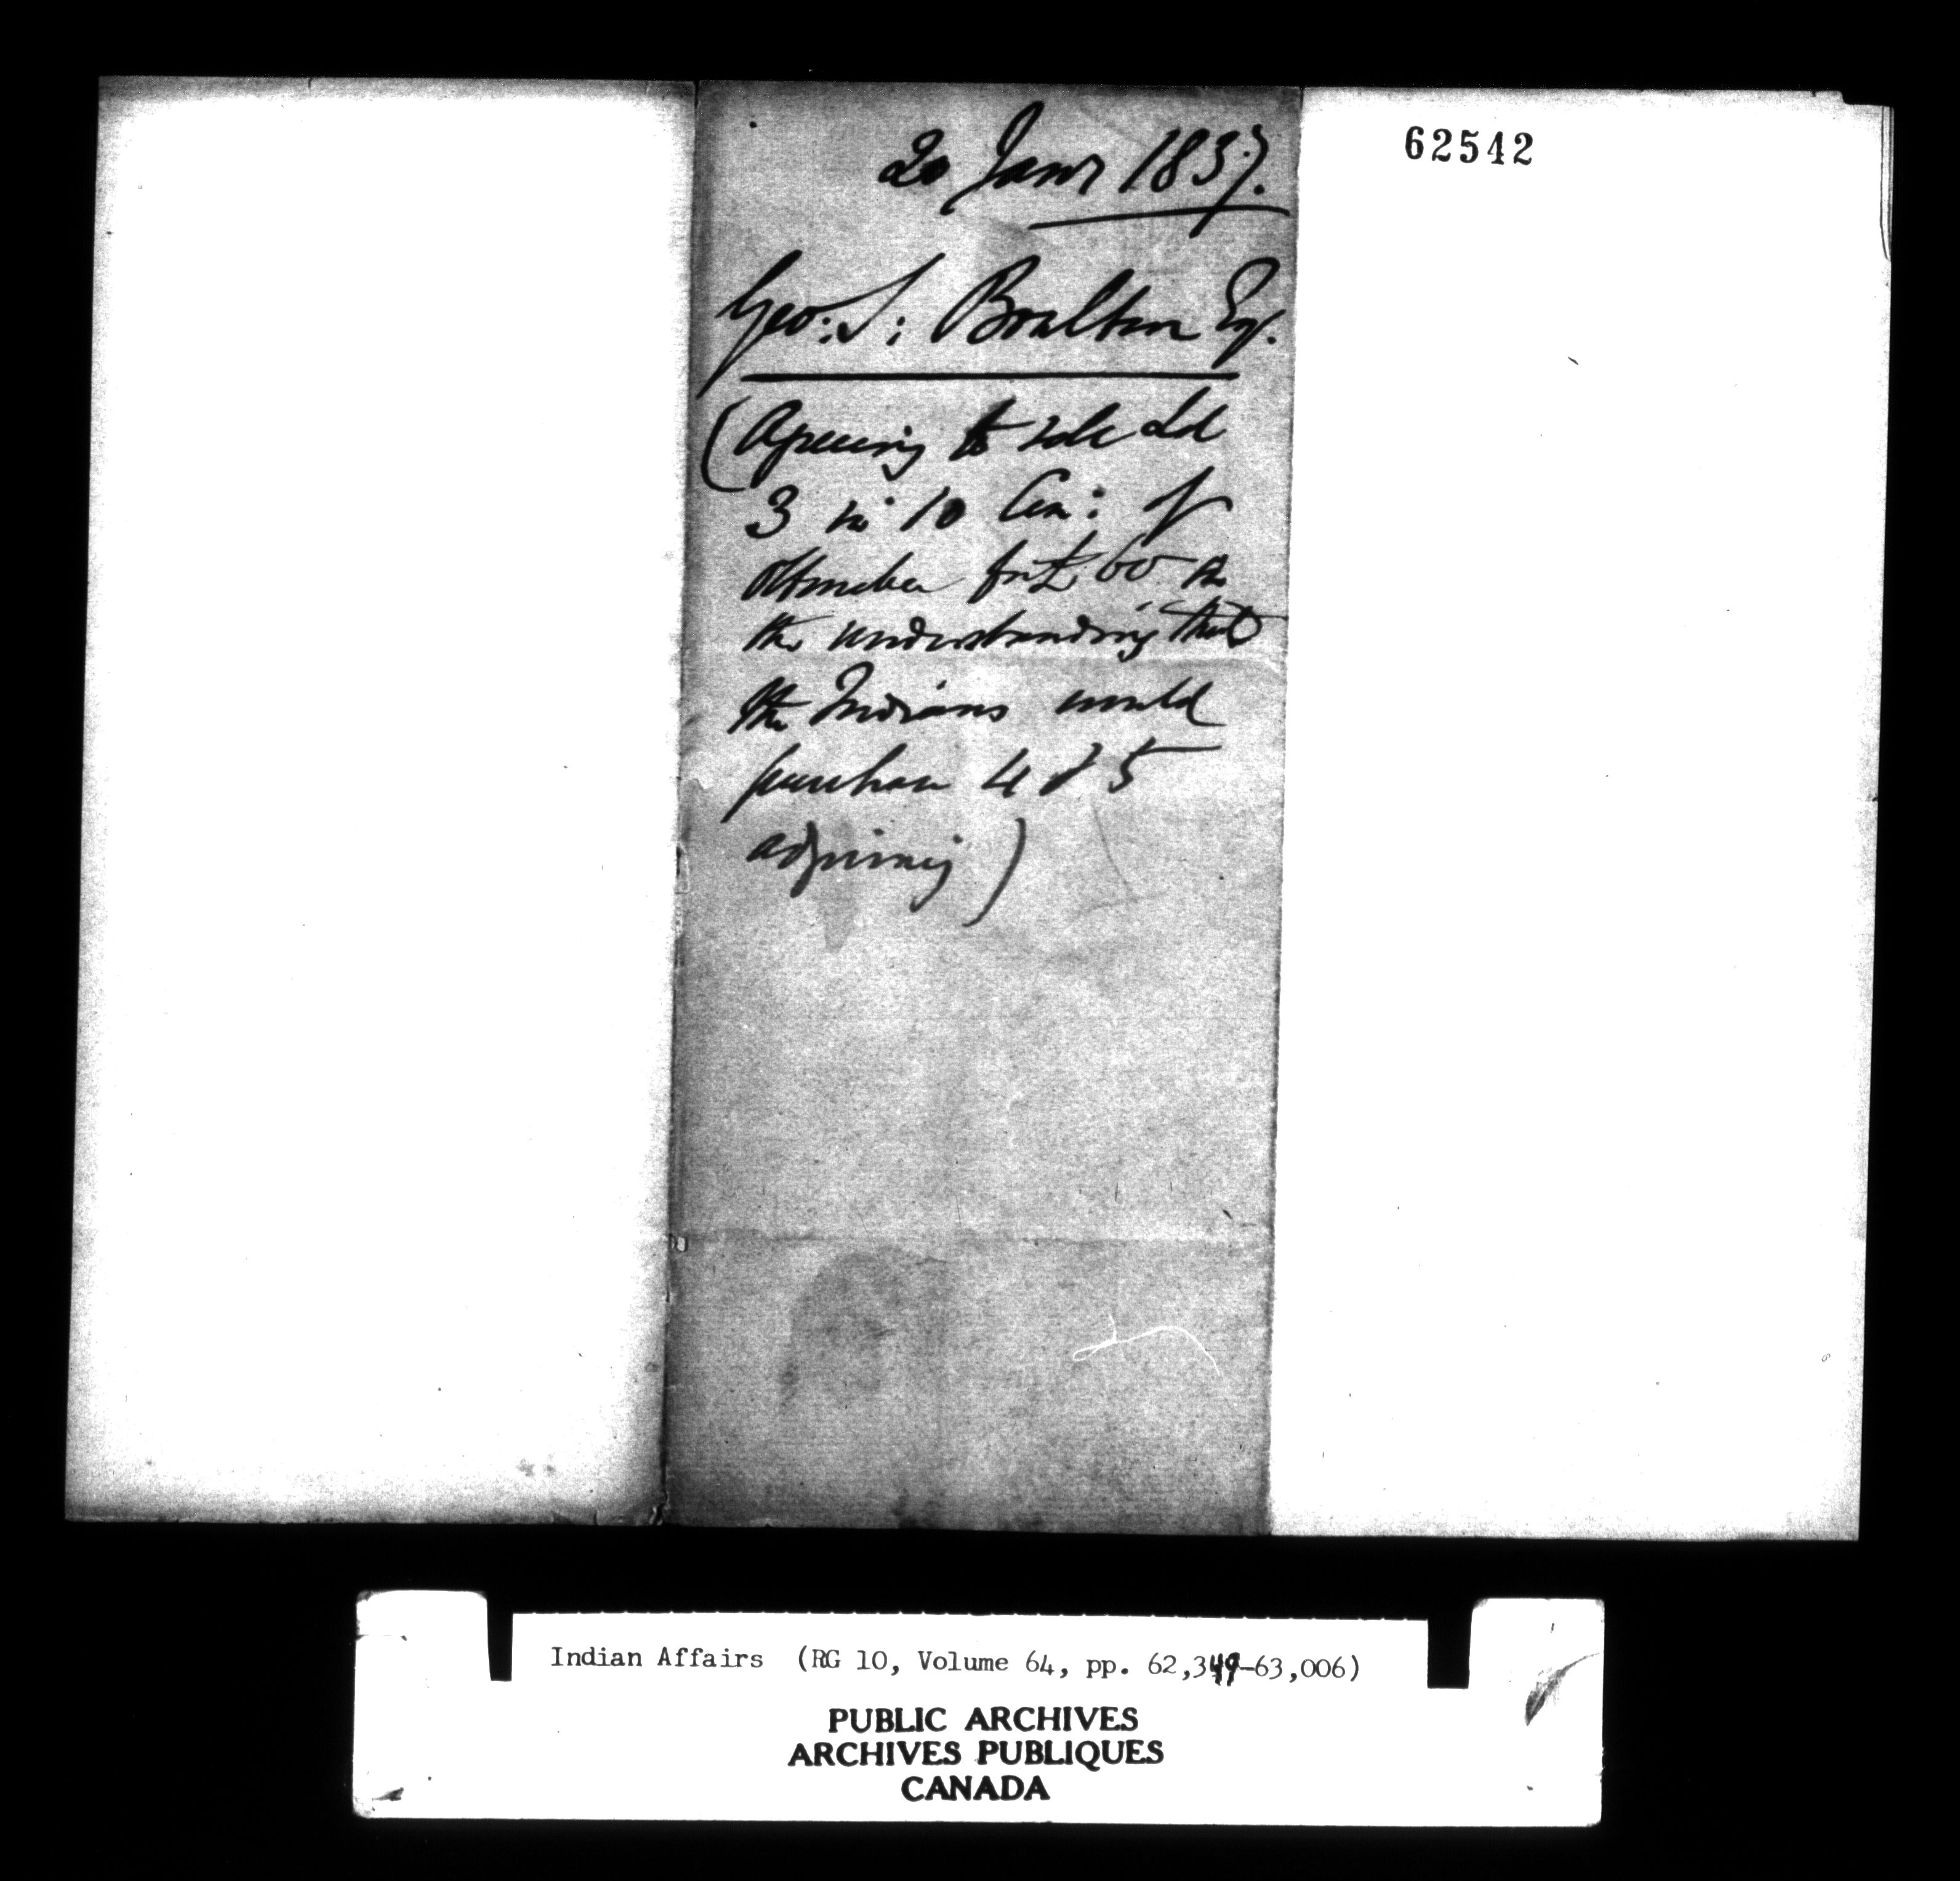 62542
20 Jany 1837.
Geo: S: Boulton Esq.
(Agreeing to sale Lot
3 in 10 Con: of
Otonabee for £60 on
the understanding that
the Indians would
purchase 4 & 5
adjoining)
Indian Affairs (RG 10, Volume 64, pp. 62,349-63,006)
PUBLIC ARCHIVES
ARCHIVES PUBLIQUES
CANADA